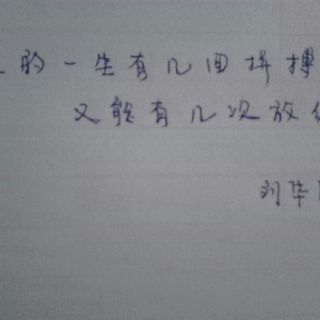 的一生有几回拼搏
又能有几次放
刘华